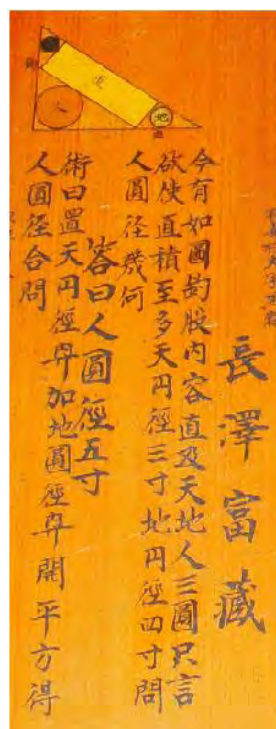 直
人
地
長澤富藏
今有如圖鈎股内容直及天地人三圓只言
欲使直積至多天円徑三寸地円徑四寸問
人圓徑幾何
答曰人圓徑五寸
術曰置天円徑冪加地圓徑冪開平方得
人圓徑合問